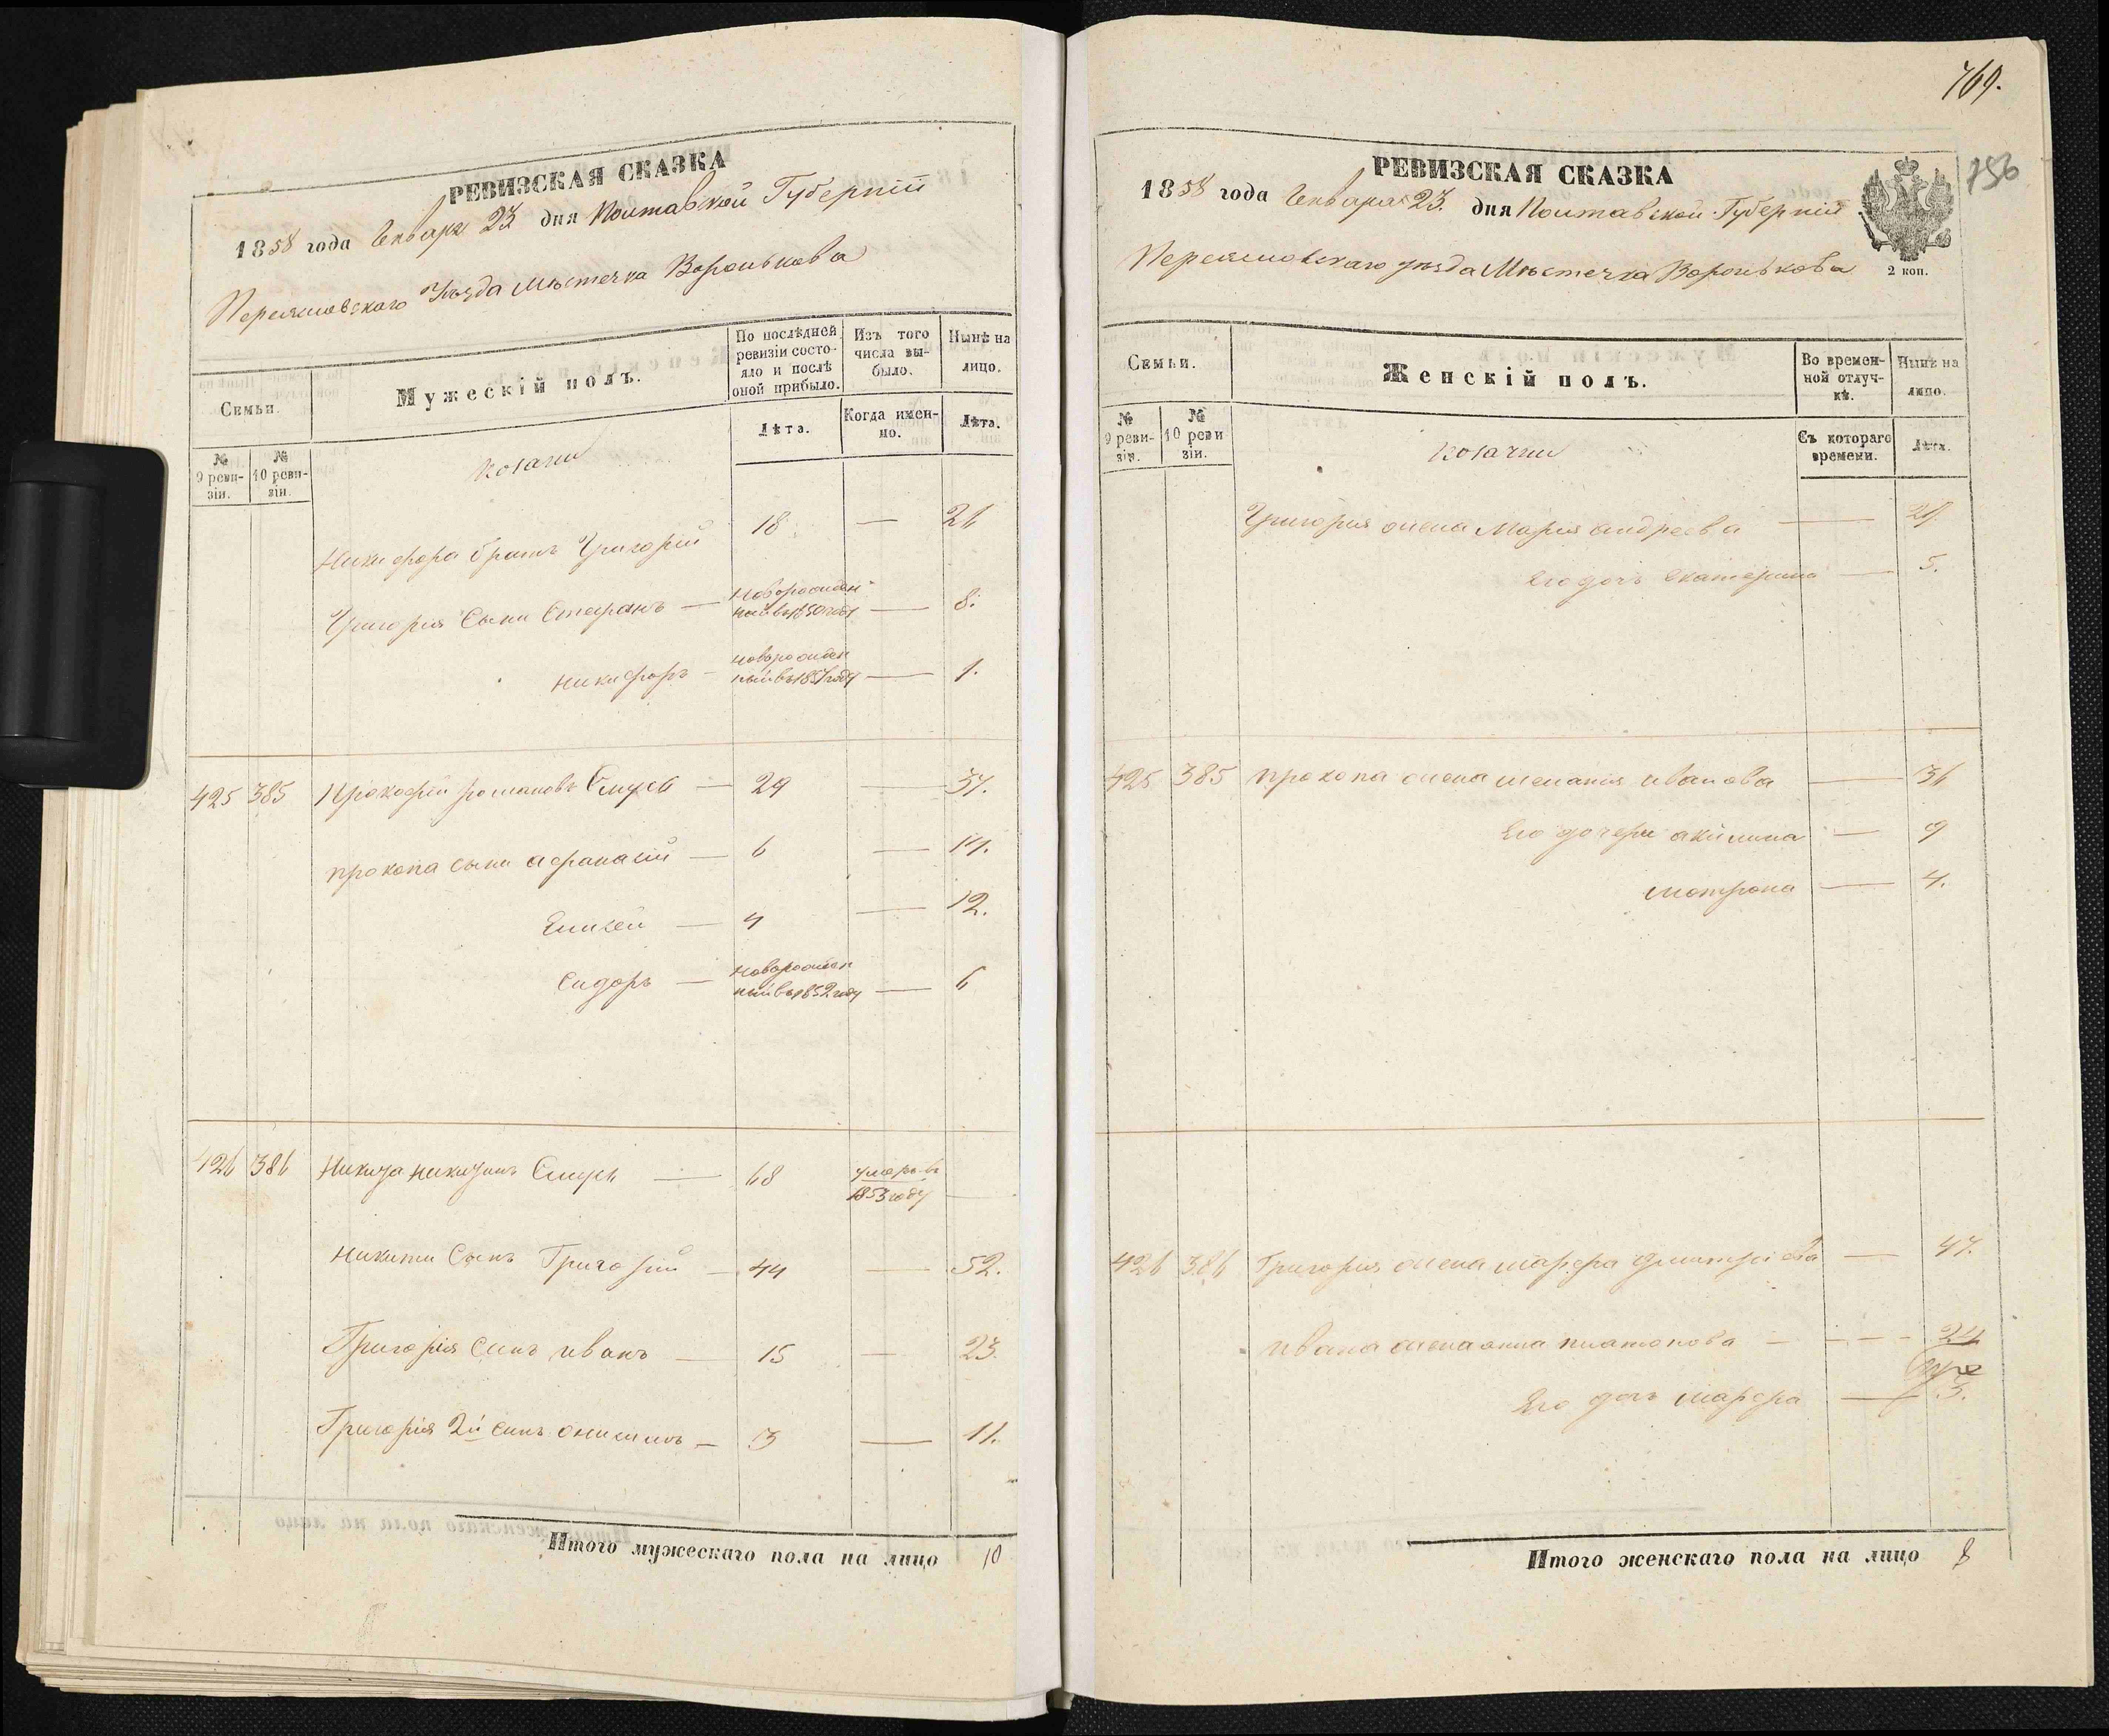 РЕВИЗСКАЯ СКАЗКА
1858 года Генваря 23 дня Полтавской Губерніи
Переяславскаго Уѣзда Мѣстечка Воронькова
Семьи.
Мужескій полъ.
По послѣдней ревизіи состояло и послѣ оной прибыло.
Изъ того числа выбыло.
Нынѣ на лицо.
№ 9 ревизіи.
№ 10 ревизіи.
козаки
Лѣта.
Когда именно.
Лѣта.
Никифора братъ Григорій 18 — 26
Григорія Сыни Стефанъ — новорожденный въ 1850 году — 8.
никифоръ — новорожденный въ 1857 году — 1.
425 385 Прокофій романовъ — 29 — 37.
прокопа сыни афанасій — 6 — 14.
Елисей — 4 — 12.
Сидоръ — новорожденный въ 1852 году — 6
426 386 Никита никитинъ — 68 умеръ въ 1853 году —
никиты Сынъ Григорій — 44 — 52.
Григорія Синъ иванъ — 15 — 23.
Григорія 2й синъ онисимъ — 3 — 11.
Итого мужескаго пола на лицо 10
769.
756
РЕВИЗСКАЯ СКАЗКА
1858 года Генваря 23. дня Полтавской Губерніи
Переяславскаго уѣзда Мѣстечка Воронькова
2 коп.
Семьи.
Женскій полъ.
Во временной отлучкѣ.
Нынѣ на лицо.
№ 9 ревизіи.
№ 10 ревизіи.
козачки
Съ котораго времени.
Лѣта.
Григорія жена Марія андреева —
Его дочь Екатерина — 5.
425 385 прокопа жена меланія иванова — 36
Его дочери акилина — 9
мотрона — 4.
426 386 Григорія жена марфа дмитріева — 47.
ивана жена анна платонова — 24
Его дочь марфа — 3.
Итого женскаго пола на лицо 8